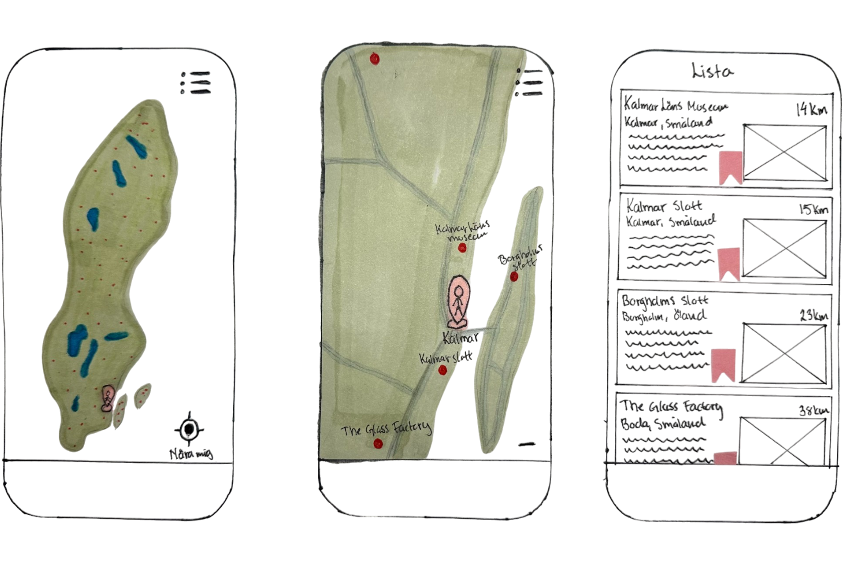 Nära mig
Kalmar Läns
museum
Borgholms
slott
Kalmar
Kalmar slott
The Glass Factory
Lista
Kalmar Läns Museum
14 km
Kalmar, Småland
Kalmar Slott
15 km
Kalmar, Småland
Borgholms Slott
23 km
Borgholm, Öland
The Glass Factory
38 km
Boda, Småland